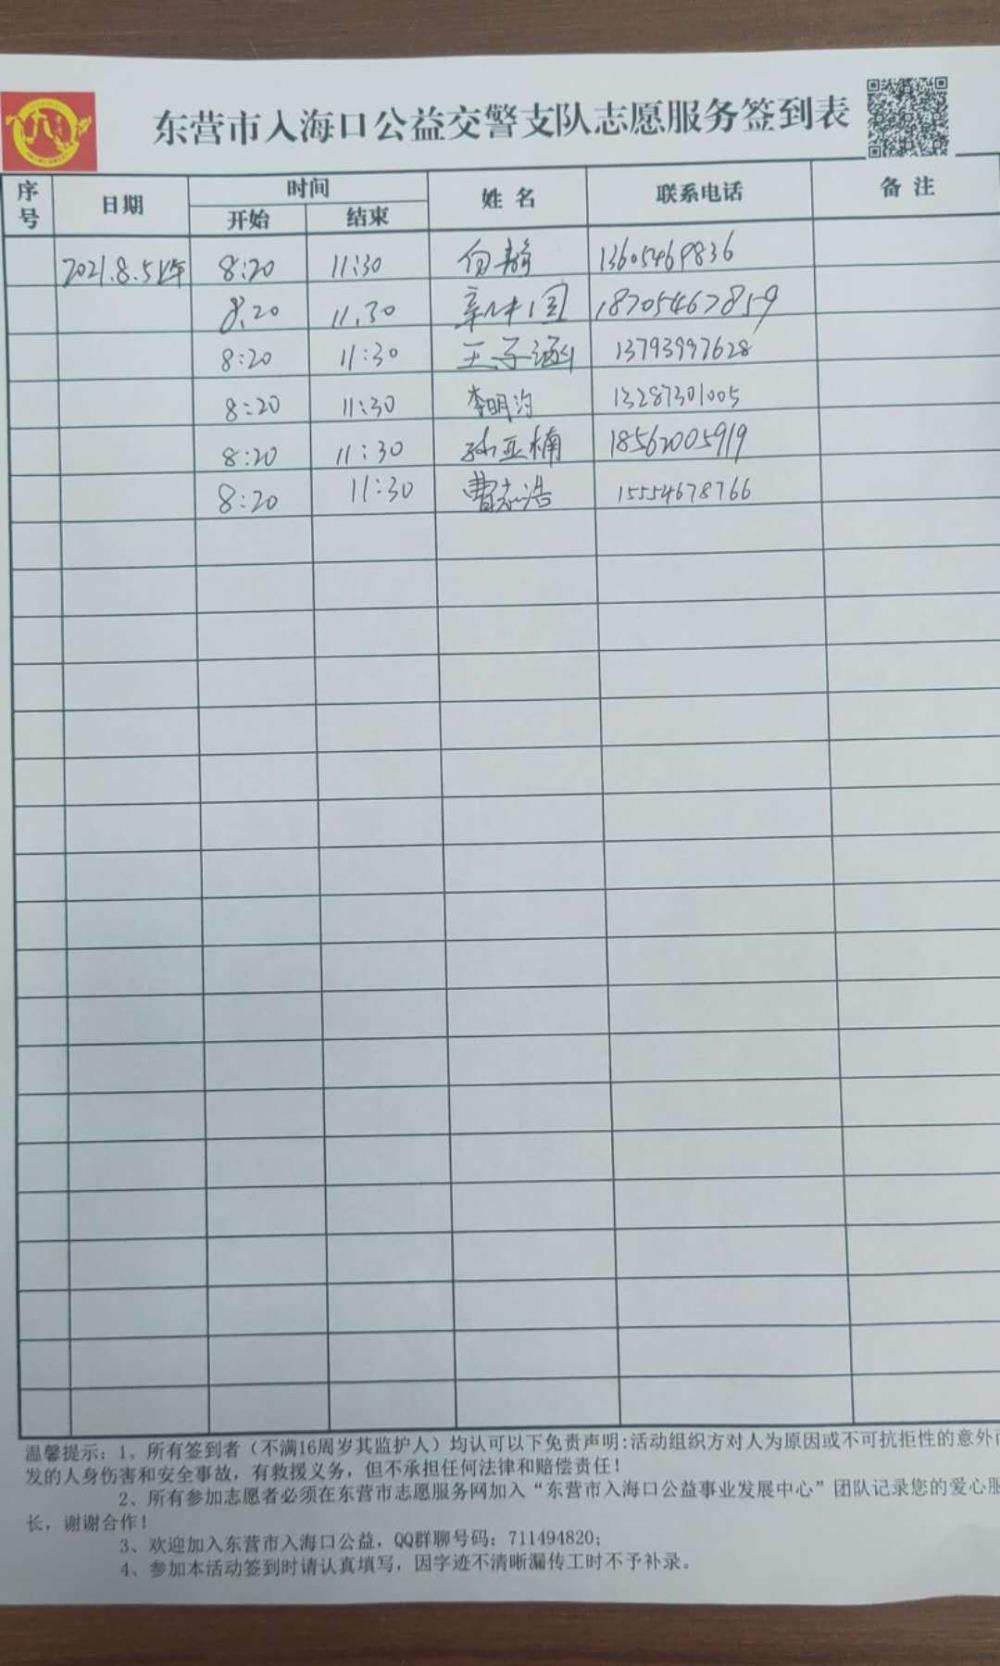 东营市入海口公益交警支队志愿服务签到表
序号 日期 时间 姓名 联系电话 备注
开始 结束
2021.8.5上午 8:20 11:30 向静 13605469836
8.20 11.30 18705467859
8:20 11:30 王子涵 13793997628
8:20 11:30 李明 13287301005
8:20 11:30 孙亚楠 18562005919
8:20 11:30 曹志浩 15554678766
温馨提示：1、所有签到者（不满16周岁其监护人）均认可以下免责声明:活动组织方对人为原因或不可抗拒性的意外
发的人身伤害和安全事故，有救援义务，但不承担任何法律和赔偿责任！
2、所有参加志愿者必须在东营市志愿服务网加入“东营市入海口公益事业发展中心”团队记录您的爱心服
长，谢谢合作！
3、欢迎加入东营市入海口公益，QQ群聊号码：711494820；
4、参加本活动签到时请认真填写，因字迹不清晰漏传工时不予补录。